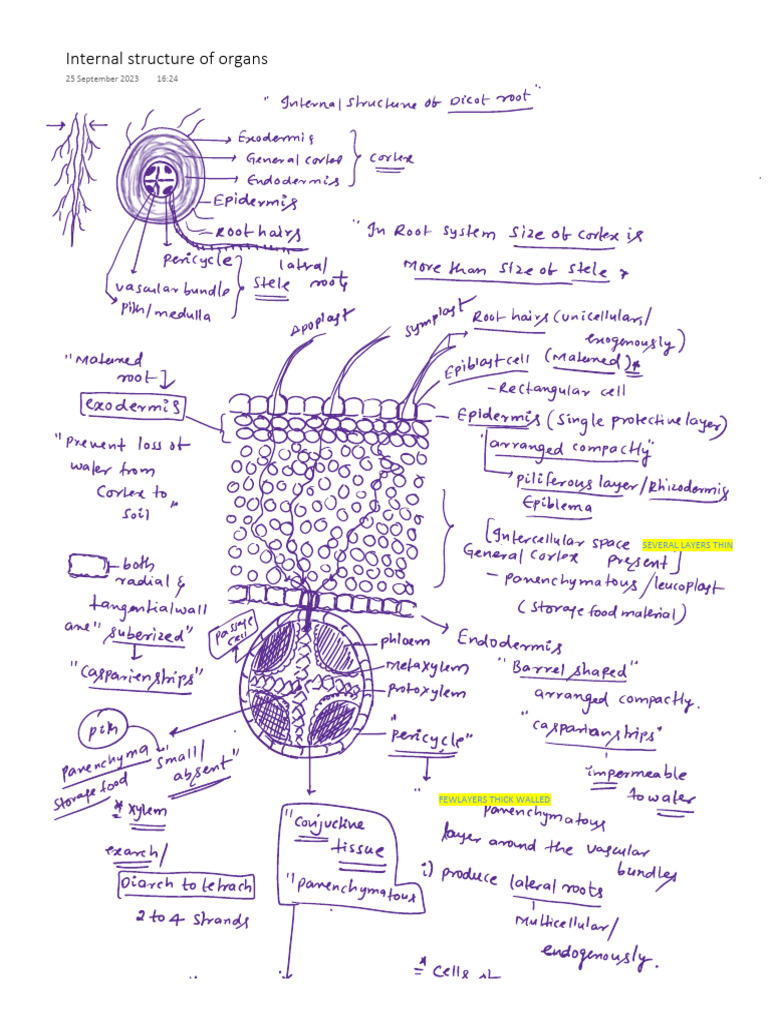 Internal structure of organs
25 September 2023 16:24
"Internal structure of Dicot root"
Exodermis
General cortex
Endodermis
cortex
Epidermis
Root hairs
pericycle
vascular bundle
Pith/medulla
stele
latral
roots
"In Root system size of cortex is
More than size of stele *
Apoplast
symplast
Root hairs (unicellulars/
exogenously)
Epiblast cell (Matured)*
- Rectangular cell
Epidermis (single protective layer)
"arranged compactly"
piliferous layer/Rhizodermis
Epiblema
"Matured
root"
exodermis
"prevent loss of
water from
Cortex to
soil"
[Intercellular space SEVERAL LAYERS THIN
General Cortex present]
- parenchymatous/leucoplast
(storage food material)
both
radial &
tangential wall
are "suberized"
"casparian strips"
passage
cell
phloem
metaxylem
protoxylem
Endodermis
"Barrel shaped"
arranged compactly.
"casparian strips"
impermeable
to water
"pericycle"
pith
parenchyma
storage food
"small/
absent"
* xylem
exarch/
Diarch to tetrach
2 to 4 strands
"conjuctive
tissue
"parenchymatous
"
FEWLAYERS THICK WALLED
parenchymatous
layer around the vascular
bundles
i) produce lateral roots
Multicellular/
endogenously.
* cells of